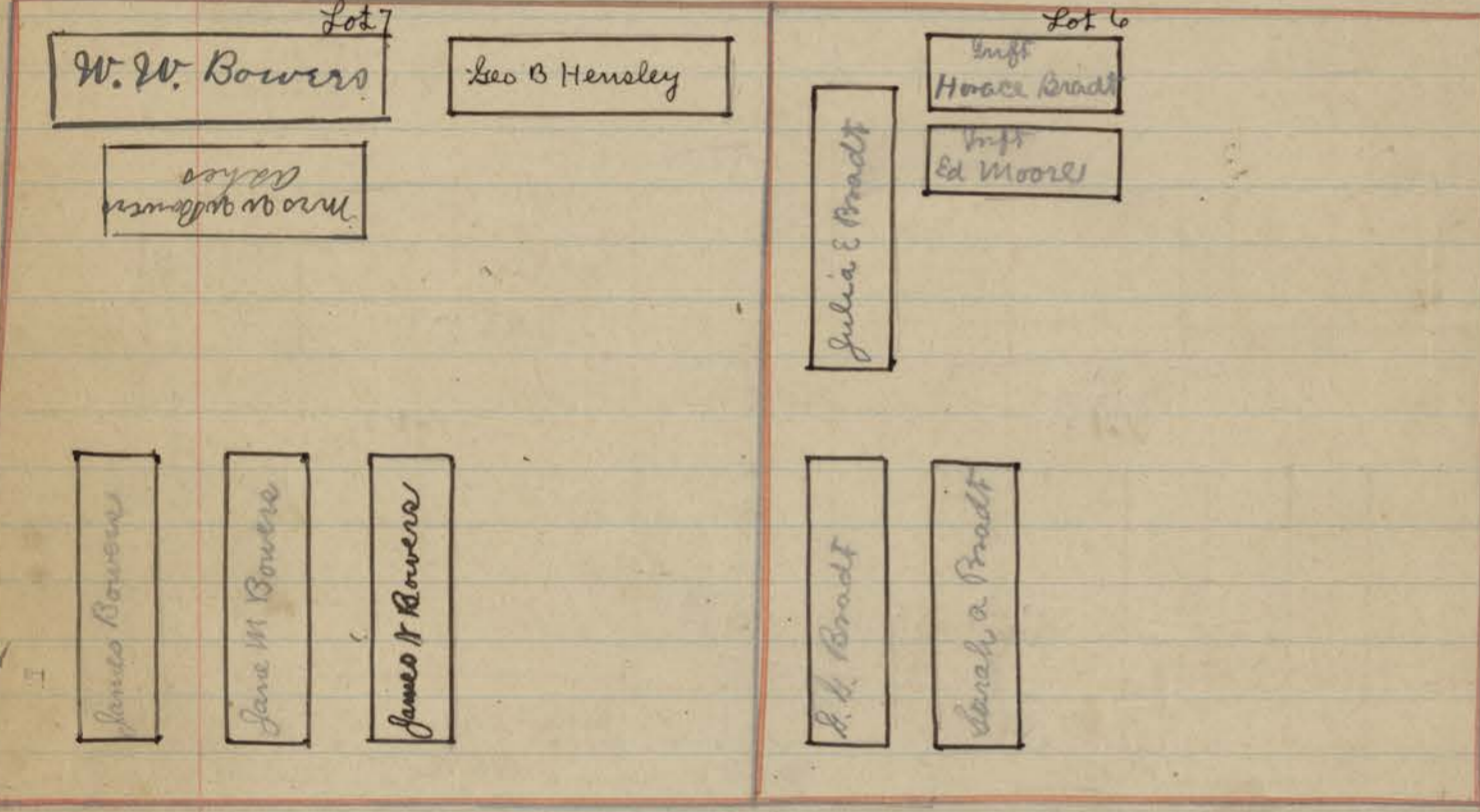 Lot 7
W. W. Bowers
Geo B Hensley
ashes
Mrs Bowers
James Bowers
Jane M Bowers
James H Bowers
Lot 6
Inft
Horace Bradt
Inft
Ed Moore
Julia E Bradt
Bradt
Sarah A Bradt